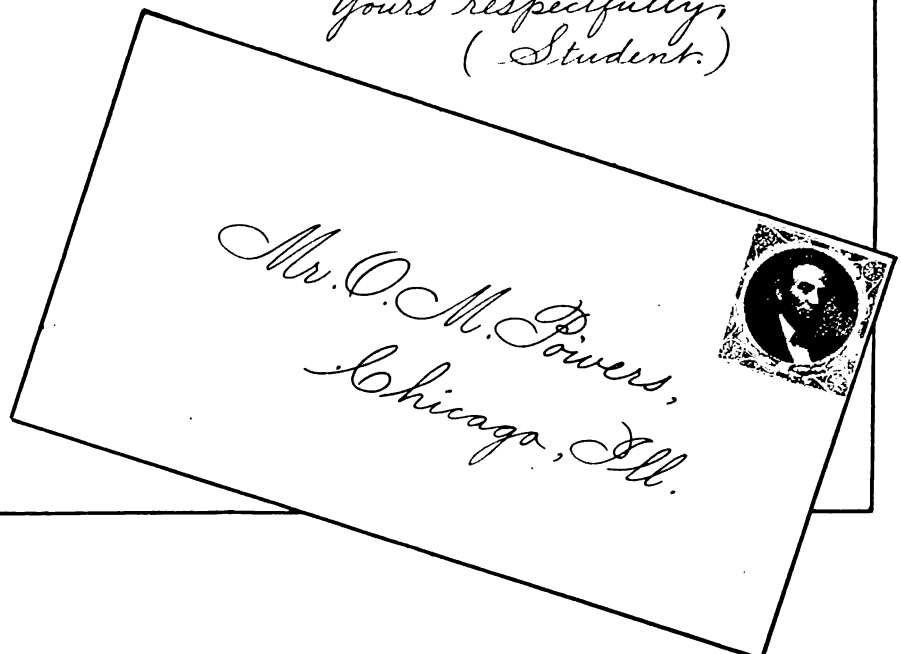 Yours respectfully,
( Student.)
Mr. O. M. Powers,
Chicago, Ill.